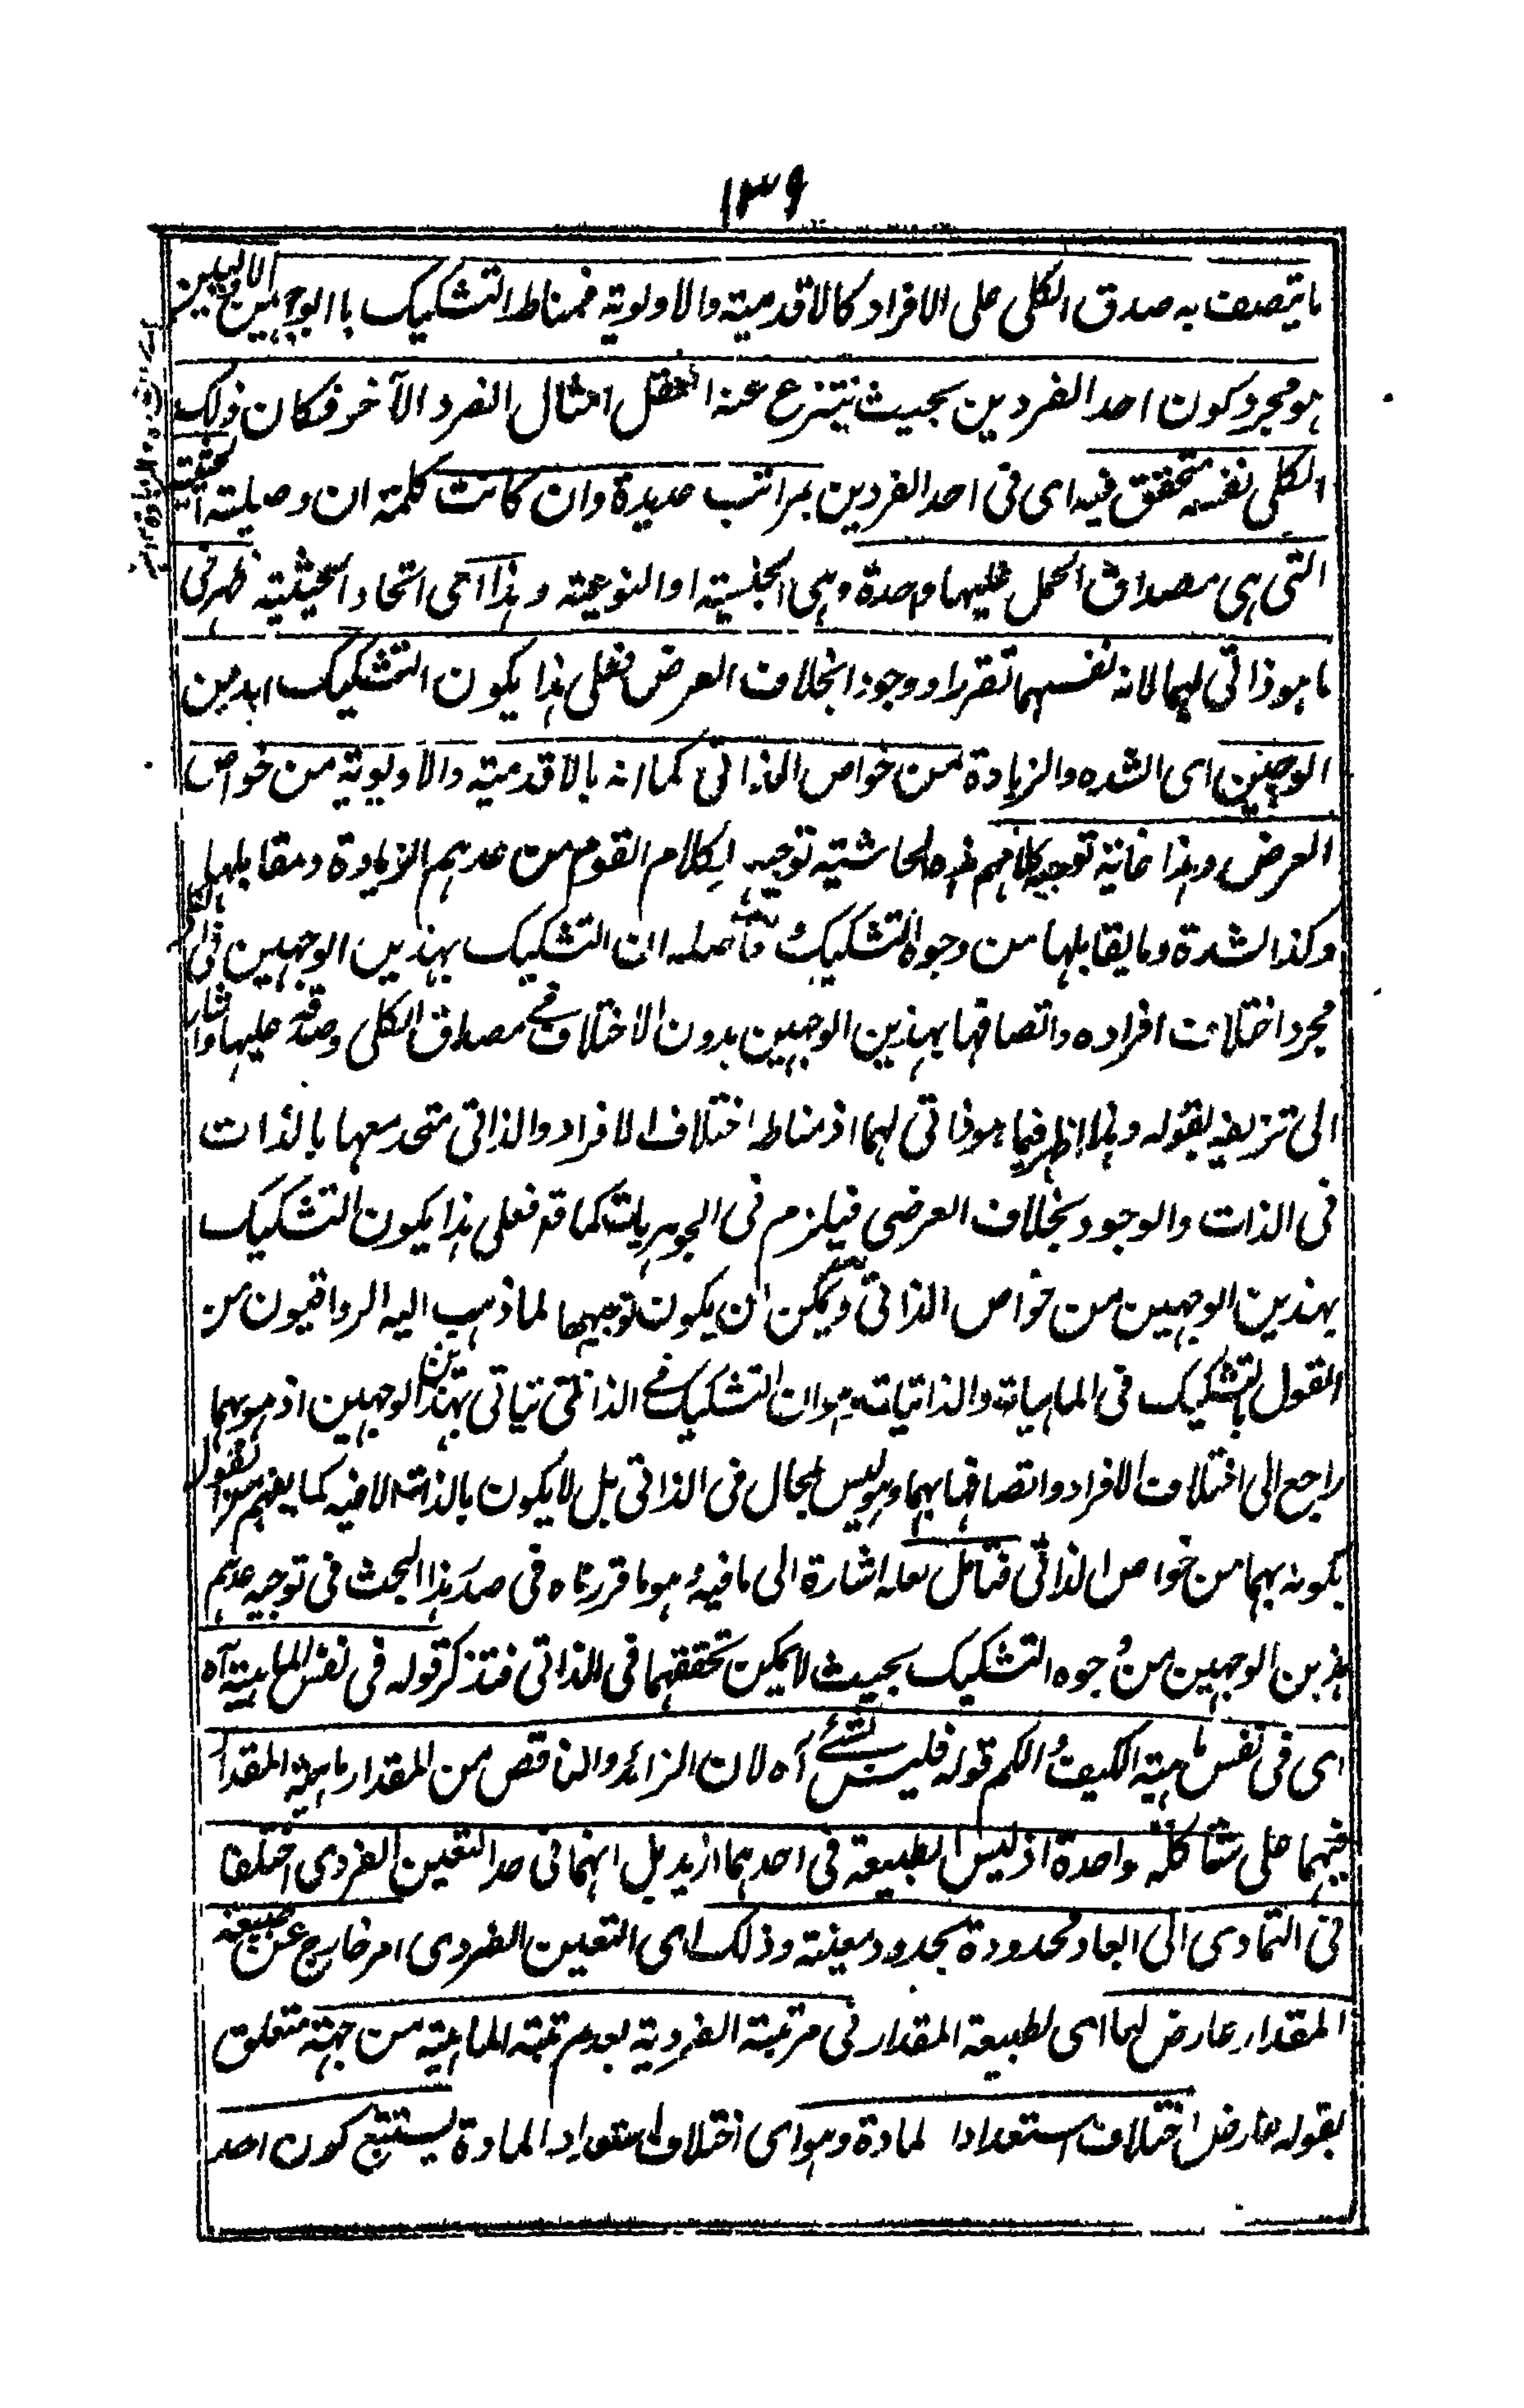 ١٣٩
ما يتصف به صدق الكلى على الافراد كالاقدمية والاولوية فمناط التشكيك باالوجهين الاوليين
هو مجرد كون احد الفردين بحيث ينتزع عنه العقل امثال الفرد الآخر فكان ذلك
الكلى نفسه متحقق فيه اى فى احد الفردين بمراتب عديدة وان كانت كلمة ان وصيلته الحقيقة
التى هى مصداق الحمل عليهما واحدة وهى الجنسية او النوعية وهذا اى اتحاد الحيثية ظهر فى
ما هو ذاتى لهما لانه نفسهما تقررا ووجودا بخلاف العرض فعلى هذا يكون التشكيك بهذين
الوجهين اى الشده والزيادة من خواص الذاتى كما انه بالاقدمية والاولوية من خواص
العرض وهذا غاية توجيه كلامهم هذه الحاشية توجيه لكلام القوم من عدهم الزيادة ومقابلها
وكذا الشدة وما يقابلها من وجوه التشكيك حاصله ان التشكيك بهذين الوجهين فى الكلى
مجرد اختلاف افراده واتصافها بهذين الوجهين بدون الاختلاف فے مصداق الكلى وصدقه عليها واشار
الى تزييفه بقوله وهذا اظهر فيما هو ذاتى لهما اذ مناطه اختلاف الافراد والذاتى متحد معها بالذات
فى الذات والوجود بخلاف العرضى فيلزم فى الجوهريات كما قد فعلى هذا يكون التشكيك
بهذين الوجهين من خواص الذاتى ويمكن ان يكون توجيها لما ذهب اليه الرواقيون من
القول بالتشكيك فى الماهيات والذاتيات وهو ان التشكيك فے الذاتى يتاتى بهذين الوجهين اذ هو بهما
راجع الى اختلاف الافراد واتصافها بهما وهو ليس بمحال فى الذاتى بل لا يكون بالذات الا فيه كما يفهم من القول
بكونه بهما من خواص الذاتى فتامل لعله اشارة الى ما فيه وهو ما قررناه فى صدر هذا البحث فى توجيه عدهم
هذين الوجهين من وجوه التشكيك بحيث لا يمكن تحققهما فى الذاتى فتذكر قوله فى نفس الماهية آه
اى فى نفس ماهية الكيف والكم قوله فليس لشئے آه لان الزائد والناقص من المقدار ماهية المقدار
فيهما على شاكلة واحدة اذ ليس الطبيعة فى احدهما ازيد بل انهما فى حد التعين الفردى اختلفا
فى التمادى الى ابعاد محدودة بحدود معينة وذلك اى التعين الفردى امر خارج عن طبيعة
المقدار عارض لها اى لطبيعة المقدار فى مرتبة الفردية بعد مرتبة الماهية من جهة متعلق
بقوله عارض اختلاف استعدادا لمادة وهو اى اختلاف استعداد المادة يستتبع كون احد